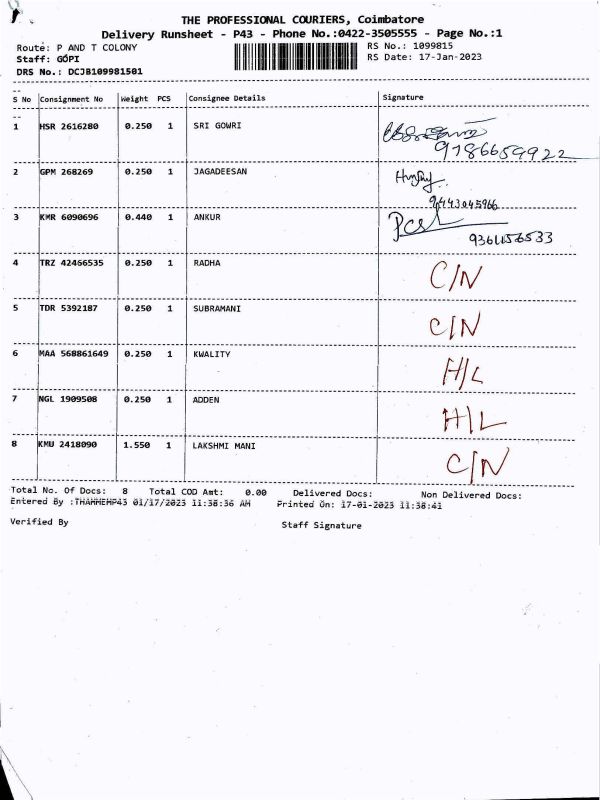 THE PROFESSIONAL COURIERS, Coimbatore
Delivery Runsheet - P43 - Phone No.:0422-3505555 - Page No.:1
Route: P AND T COLONY RS No.: 1099815
Staff: GOPI RS Date: 17-Jan-2023
DRS No.: DCJB109981501
S No Consignment No Weight PCS Consignee Details Signature
1 HSR 2616280 0.250 1 SRI GOWRI
9786659922
2 GPM 268269 0.250 1 JAGADEESAN
9443045966
3 KMR 6090696 0.440 1 ANKUR
9361156533
4 TRZ 42466535 0.250 1 RADHA C/N
5 TDR 5392187 0.250 1 SUBRAMANI C/N
6 MAA 568861649 0.250 1 KWALITY H/L
7 NGL 1909508 0.250 1 ADDEN H/L
8 KMU 2418090 1.550 1 LAKSHMI MANI C/N
Total No. Of Docs: 8 Total COD Amt: 0.00 Delivered Docs: Non Delivered Docs:
Entered By :THAMMEMP43 01/17/2023 11:38:36 AM Printed On: 17-01-2023 11:38:41
Verified By Staff Signature